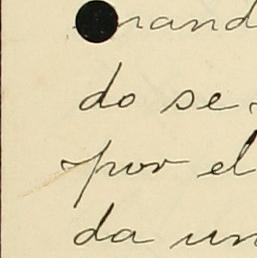 rand
do se
por el
da un